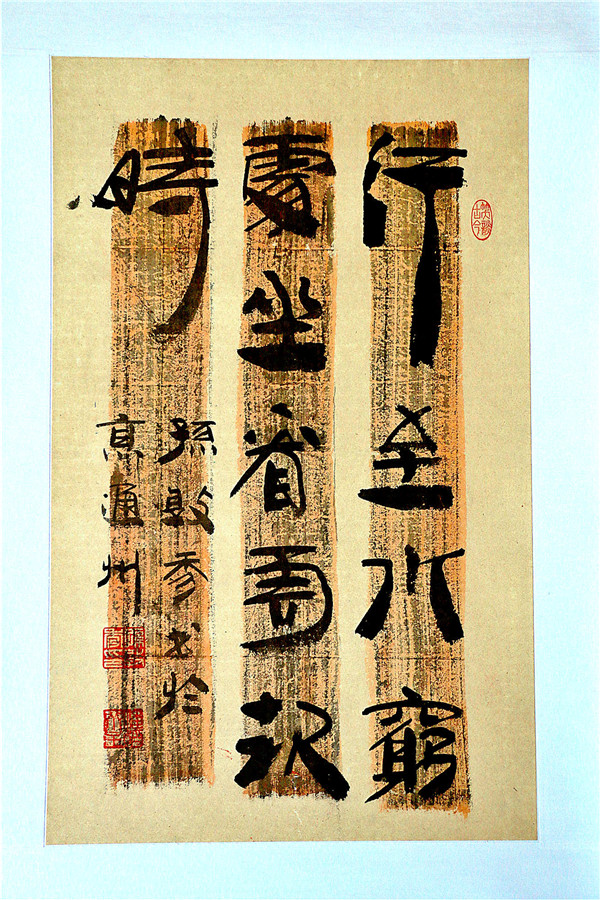 行至水窮
處坐看雲起
時
孫敦秀书於
京通州